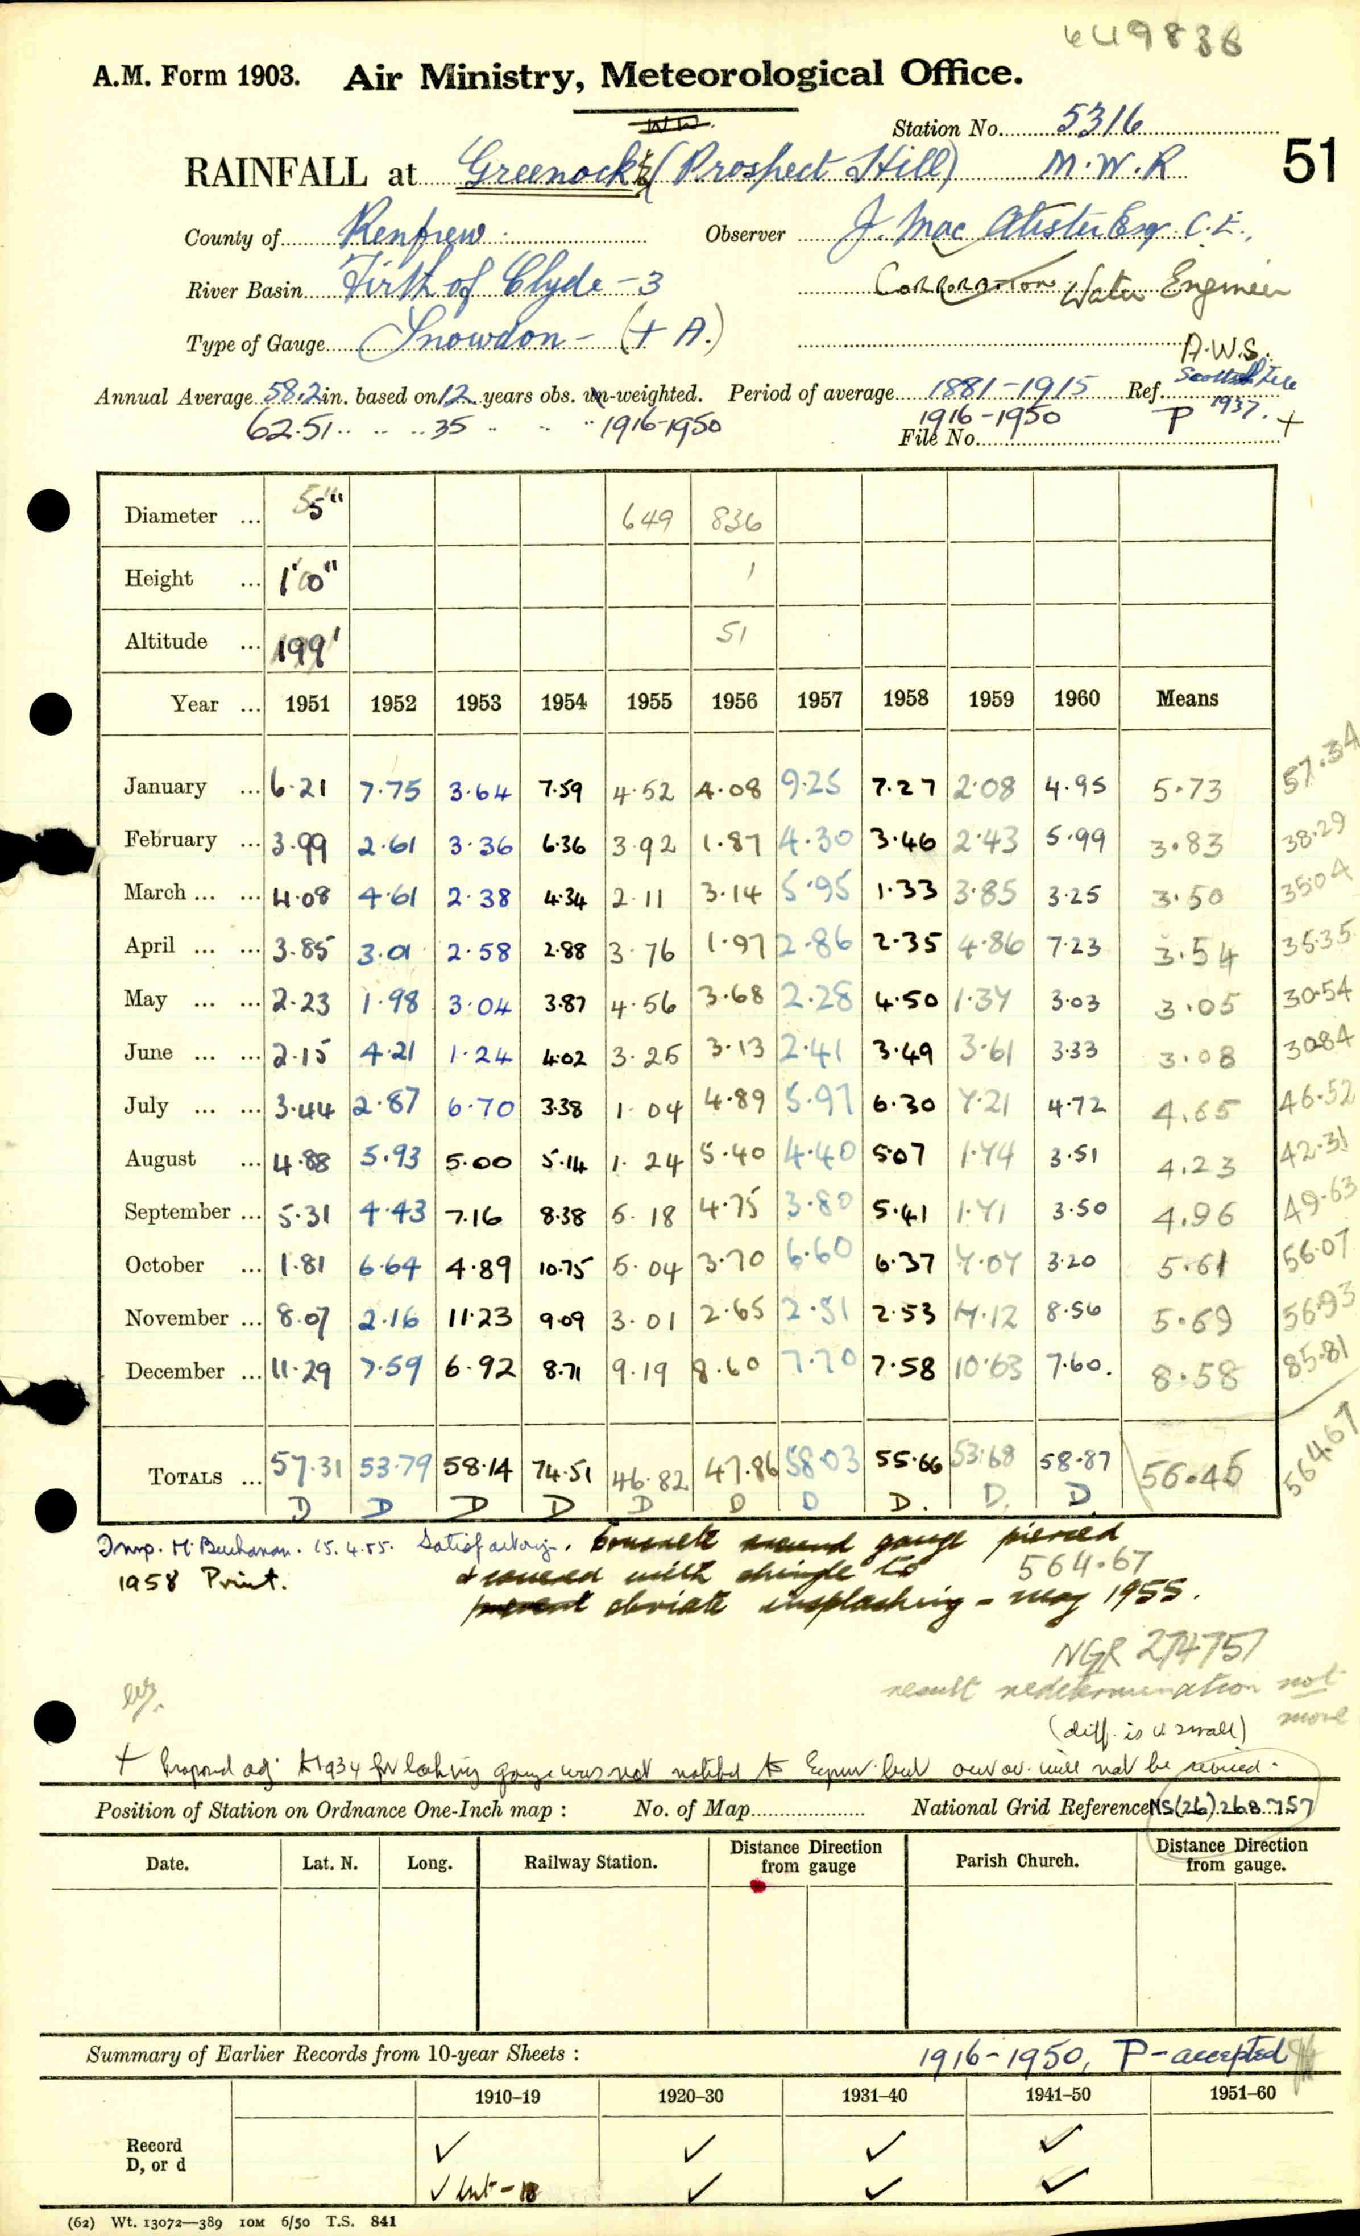 649836
A.M. Form 1903. Air Ministry, Meteorological Office.
Station No. 5316
RAINFALL at Greenock (Prospect Hill) M.W.R 51
County of Renfrew. Observer J. MacAlister Esq C.E.,
River Basin Firth of Clyde - 3 CORPORATION Water Engineer
Type of Gauge Snowdon - (+ A.) A.W.S.
Annual Average 58.2 in. based on 12 years obs. un-weighted. Period of average 1881-1915 Ref. Scottish File 1937.
62.51 .. .. .. 35 .. .. .. 1916-1950 1916-1950 P +
File No.
Diameter ... 5" 649 836
Height ... 1'0" 1
Altitude ... 199' 51
Year ... 1951 1952 1953 1954 1955 1956 1957 1958 1959 1960 Means
January ... 6.21 7.75 3.64 7.59 4.52 4.08 9.25 7.27 2.08 4.95 5.73 57.34
February ... 3.99 2.61 3.36 6.36 3.92 1.87 4.30 3.46 2.43 5.99 3.83 38.29
March ... ... 4.08 4.61 2.38 4.34 2.11 3.14 5.95 1.33 3.85 3.25 3.50 35.04
April ... ... 3.85 3.01 2.58 2.88 3.76 1.97 2.86 2.35 4.86 7.23 3.54 35.35
May ... ... 2.23 1.98 3.04 3.87 4.56 3.68 2.28 4.50 1.37 3.03 3.05 30.54
June ... ... 2.15 4.21 1.24 4.02 3.25 3.13 2.41 3.49 3.61 3.33 3.08 30.84
July ... ... 3.44 2.87 6.70 3.38 1.04 4.89 5.97 6.30 7.21 4.72 4.65 46.52
August ... 4.88 5.93 5.00 5.14 1.24 5.40 4.40 5.07 1.74 3.51 4.23 42.31
September ... 5.31 4.43 7.16 8.38 5.18 4.75 3.80 5.41 1.71 3.50 4.96 49.63
October ... 1.81 6.64 4.89 10.75 5.04 3.70 6.60 6.37 7.07 3.20 5.61 56.07
November ... 8.07 2.16 11.23 9.09 3.01 2.65 2.51 2.53 7.12 8.56 5.69 56.93
December ... 11.29 7.59 6.92 8.71 9.19 8.60 7.70 7.58 10.63 7.60. 8.58 85.81
TOTALS ... 57.31 53.79 58.14 74.51 46.82 47.86 58.03 55.66 53.68 58.87 56.45 564.67
D D D D D D D D. D. D.
Insp. H. Buchanan. 15.4.55. Satisfactory. Concrete around gauge pierced
1958 Print. & covered with shingle to 564.67
prevent obviate insplashing - May 1955.
NGR 274757
result redetermination not
(diff. is v small) more
+ Proposed adj for leaking gauge was not notified to but our av. will not be revised.
Position of Station on Ordnance One-Inch map : No. of Map National Grid Reference NS(26) 268 757
Date. Lat. N. Long. Railway Station. Distance from gauge Direction Parish Church. Distance Direction from gauge.
Summary of Earlier Records from 10-year Sheets : 1916-1950, P - accepted
1910–19 1920–30 1931–40 1941–50 1951–60
Record ✓ ✓ ✓ ✓
D, or d ✓ ✓ ✓ ✓
(62) Wt. 13072—389 10M 6/50 T.S. 841